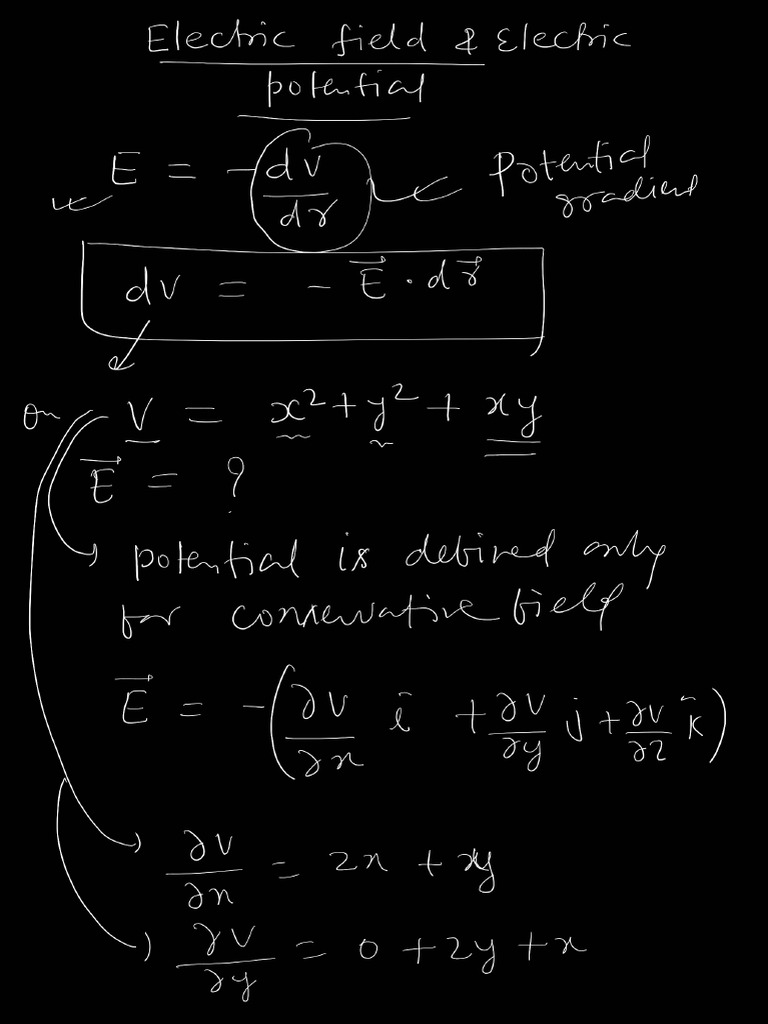 Electric field & Electric
potential
E = - dv/dr Potential
gradient
dv = - E⃗ · dr⃗
On V = x² + y² + xy
E⃗ = ?
potential is defined only
for conservative field
E⃗ = -(∂V/∂x î + ∂V/∂y j + ∂V/∂z k̂)
∂V/∂x = 2x + xy
∂V/∂y = 0 + 2y + x